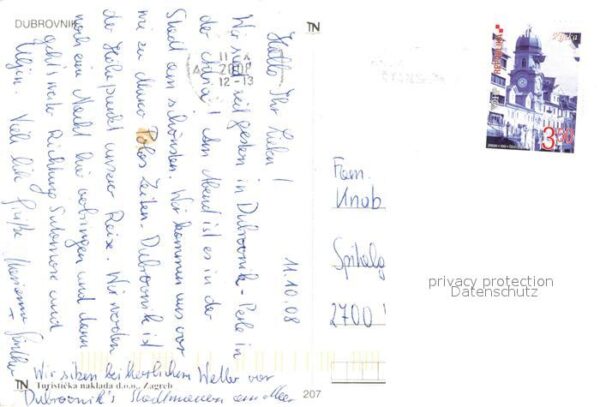 DUBROVNIK
TN
11.10.08
Hallo Ihr Lieben!
Wir sind seit gestern in Dubrovnik - Perle in
der Adria! Am Abend ist es in der
Stadt am schönsten. Wir kommen uns vor
wie zu Marco Polos Zeiten. Dubrovnik ist
der Höhepunkt unserer Reise. Wir werden
noch eine Nacht hier verbringen und dann
geht's Richtung Sutomore und
Ulcinj. Viele liebe Grüße Marianne
Wir sitzen bei herrlichem Wetter vor
Dubrovnik's Stadtmauern am Meer
TN Turistička naklada d.o.o., Zagreb
207
12-13
Rijeka
REPUBLIKA
3,50
Fam.
Knob
Spitalg
2700
privacy protection
Datenschutz